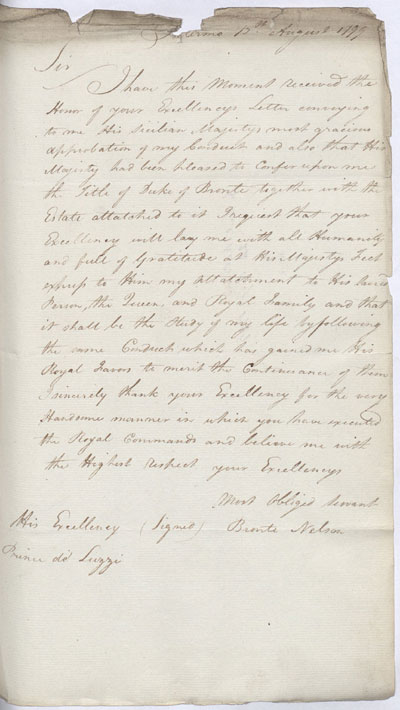 Palermo 13th August 1799
Sir
I have this Moment received the
Honor of your Excellencys Letter conveying
to me His Sicilian Majestys most gracious
approbation of my Conduct and also that His
Majesty had been pleased to Confer upon me
the Title of Duke of Bronte together with the
Estate attatched to it I request that your
Excellency will lay me with all Humanity
and full of Gratitude at His Majestys Feet
express to Him my Attatchment to His Sacred
Person, the Queen and Royal Family and that
it shall be the Study of my life by following
the same Conduct which has gained me His
Royal Favor to merit the Continuance of them
I sincerely thank your Excellency for the very
Handsome manner in which you have executed
the Royal Commands and believe me with
the Highest respect your Excellencys
Most obliged servant
His Excellency (Signed) Bronte Nelson
Prince do Luzzi